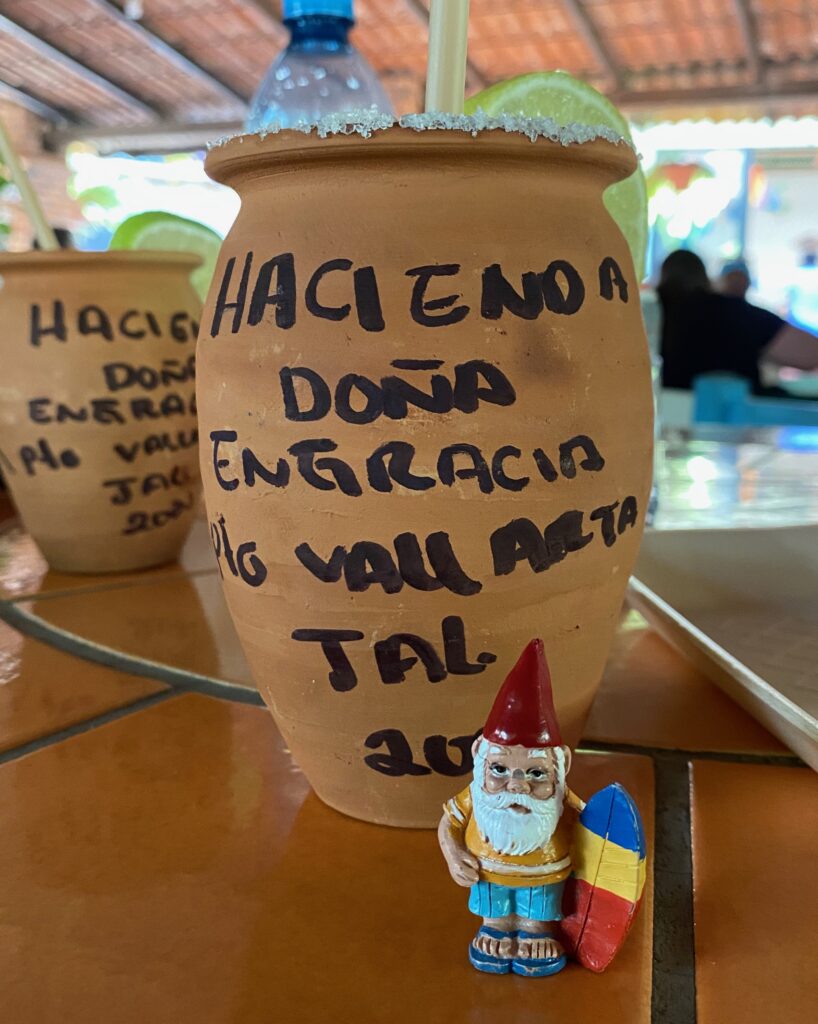 HACIENDA
DOÑA
ENGRACIA
pto VALLARTA
JAL.
HACIEN
DOÑA
ENGRAC
pto VALLA
JAL